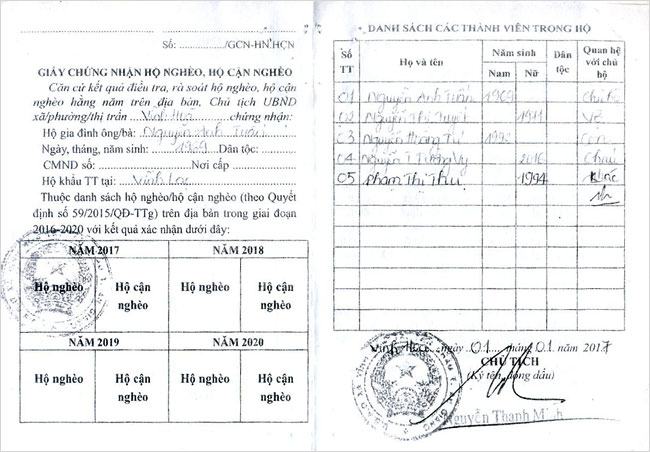 Số: ............../GCN-HN.HCN
GIẤY CHỨNG NHẬN HỘ NGHÈO, HỘ CẬN NGHÈO
Căn cứ kết quả điều tra, rà soát hộ nghèo, hộ cận
nghèo hằng năm trên địa bàn, Chủ tịch UBND
xã/phường/thị trấn Vĩnh Hoà chứng nhận:
Hộ gia đình ông/bà: Nguyễn Anh Tuấn
Ngày, tháng, năm sinh: 1969 Dân tộc:
CMND số: Nơi cấp
Hộ khẩu TT tại: Vĩnh Lạc
Thuộc danh sách hộ nghèo/hộ cận nghèo (theo Quyết
định số 59/2015/QĐ-TTg) trên địa bàn trong giai đoạn
2016-2020 với kết quả xác nhận dưới đây:
NĂM 2017 NĂM 2018
Hộ nghèo Hộ cận nghèo Hộ nghèo Hộ cận nghèo
NĂM 2019 NĂM 2020
Hộ nghèo Hộ cận nghèo Hộ nghèo Hộ cận nghèo
DANH SÁCH CÁC THÀNH VIÊN TRONG HỘ
Số TT Họ và tên Năm sinh Dân tộc Quan hệ với chủ hộ
Nam Nữ
01 Nguyễn Anh Tuấn 1969 Chủ hộ
02 Nguyễn Thị Tuyết 1971 Vợ
03 Nguyễn Hoàng Tú 1992 Con
04 Nguyễn T Tường Vy 2016 Cháu
05 Phạm Thị Thu 1994 Khác
Vĩnh Hoà, ngày 01 tháng 01 năm 2017
CHỦ TỊCH
(Ký tên, đóng dấu)
Nguyễn Thanh Minh